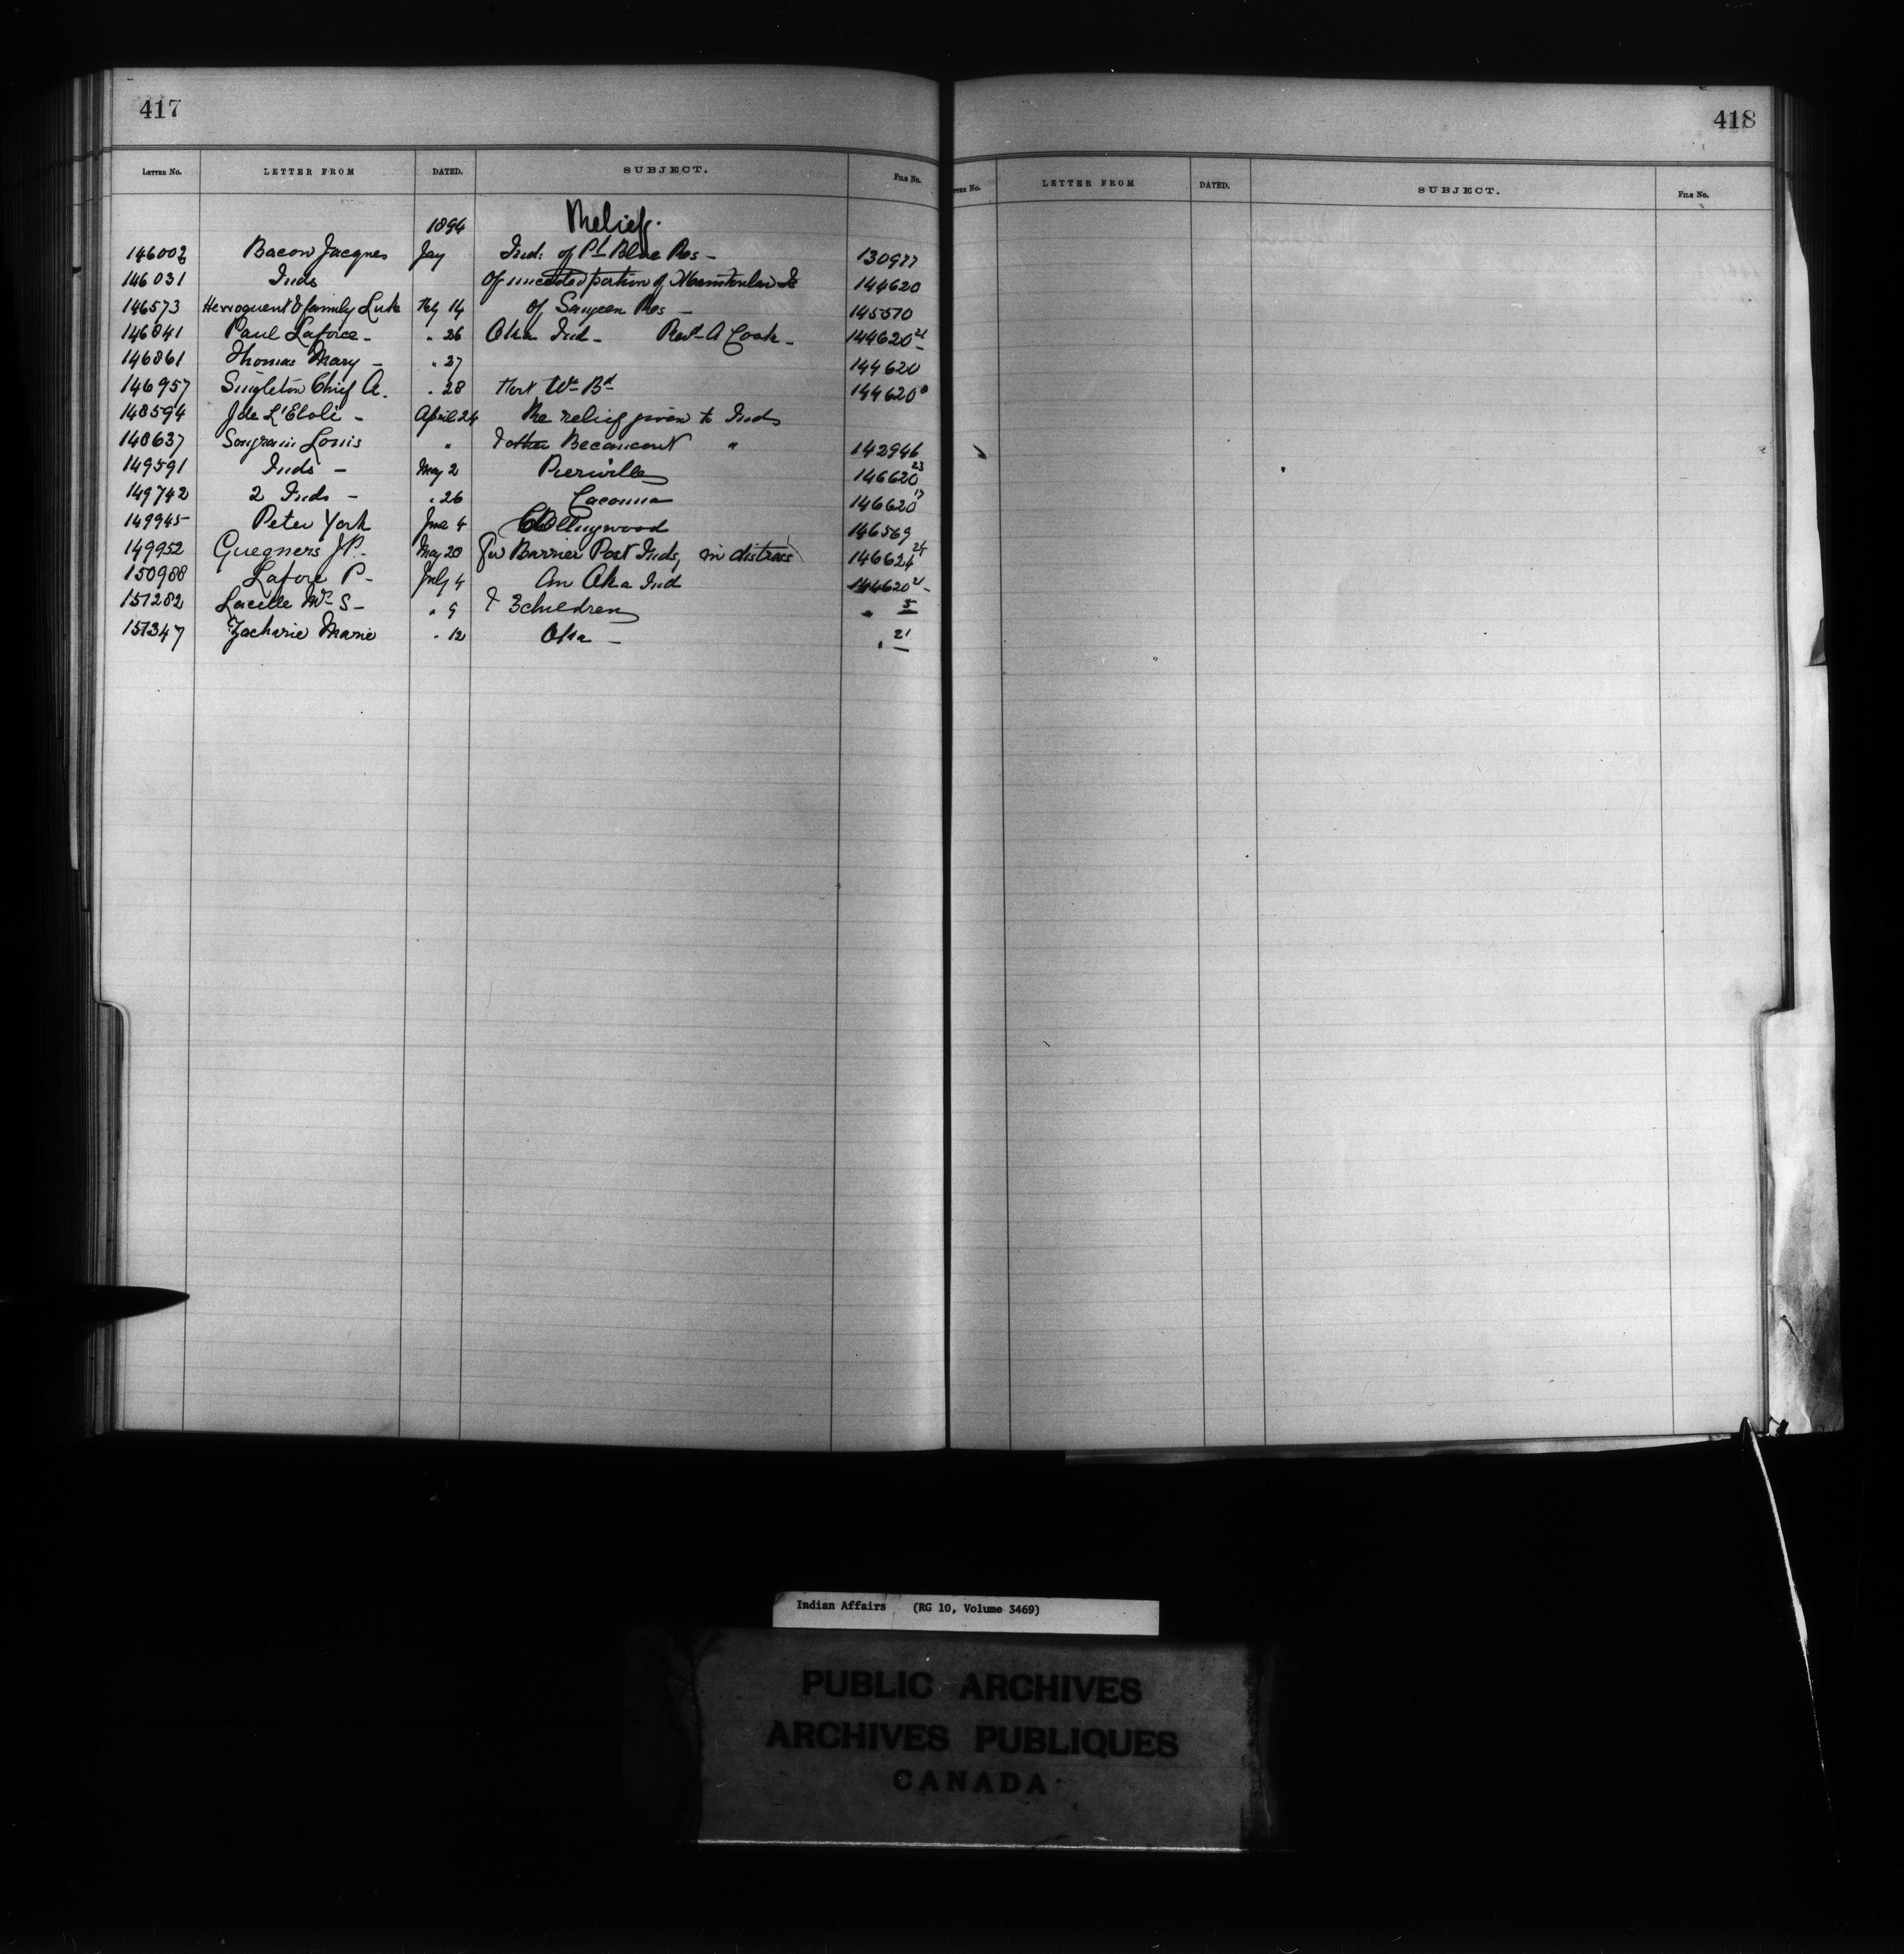 417
LETTER No. LETTER FROM DATED. SUBJECT. FILE No.
1894 Relief.
146002 Bacon Jacques Jay Inds of Pt Blue Res – 130977
146031 Inds Of unceded portion of Manitoulin Is 144620
146573 Herroquent & family Luke Feby 14 of Saugeen Res – 145570
146841 Paul Laforce – " 26 Oka Ind – Revd A Cook – 144620 21
146861 Thomas Mary – " 27 144620
146957 Singleton Chief A. " 28 144620
148594 J de L'Etoile – April 24 Re relief given to Inds
148637 Songrain Louis " & other Becancour " 142946
149591 Inds – May 2 Pierville 146620 23
149742 2 Inds – " 26 Cacouna 146620 17
149945 Peter York June 4 Collingwood 146569
149952 Guegners J P. May 20 for Barrier Post Inds, in distress 146621 24
150988 Lafore P – July 4 An Oka Ind 144620 21 –
151282 Lacelle Mrs S – " 9 & 3 children " 5
151347 Zacharie Marie " 12 Oka – " 21
418
TTER No. LETTER FROM DATED. SUBJECT. FILE No.
Indian Affairs (RG 10, Volume 3469)
PUBLIC ARCHIVES
ARCHIVES PUBLIQUES
CANADA